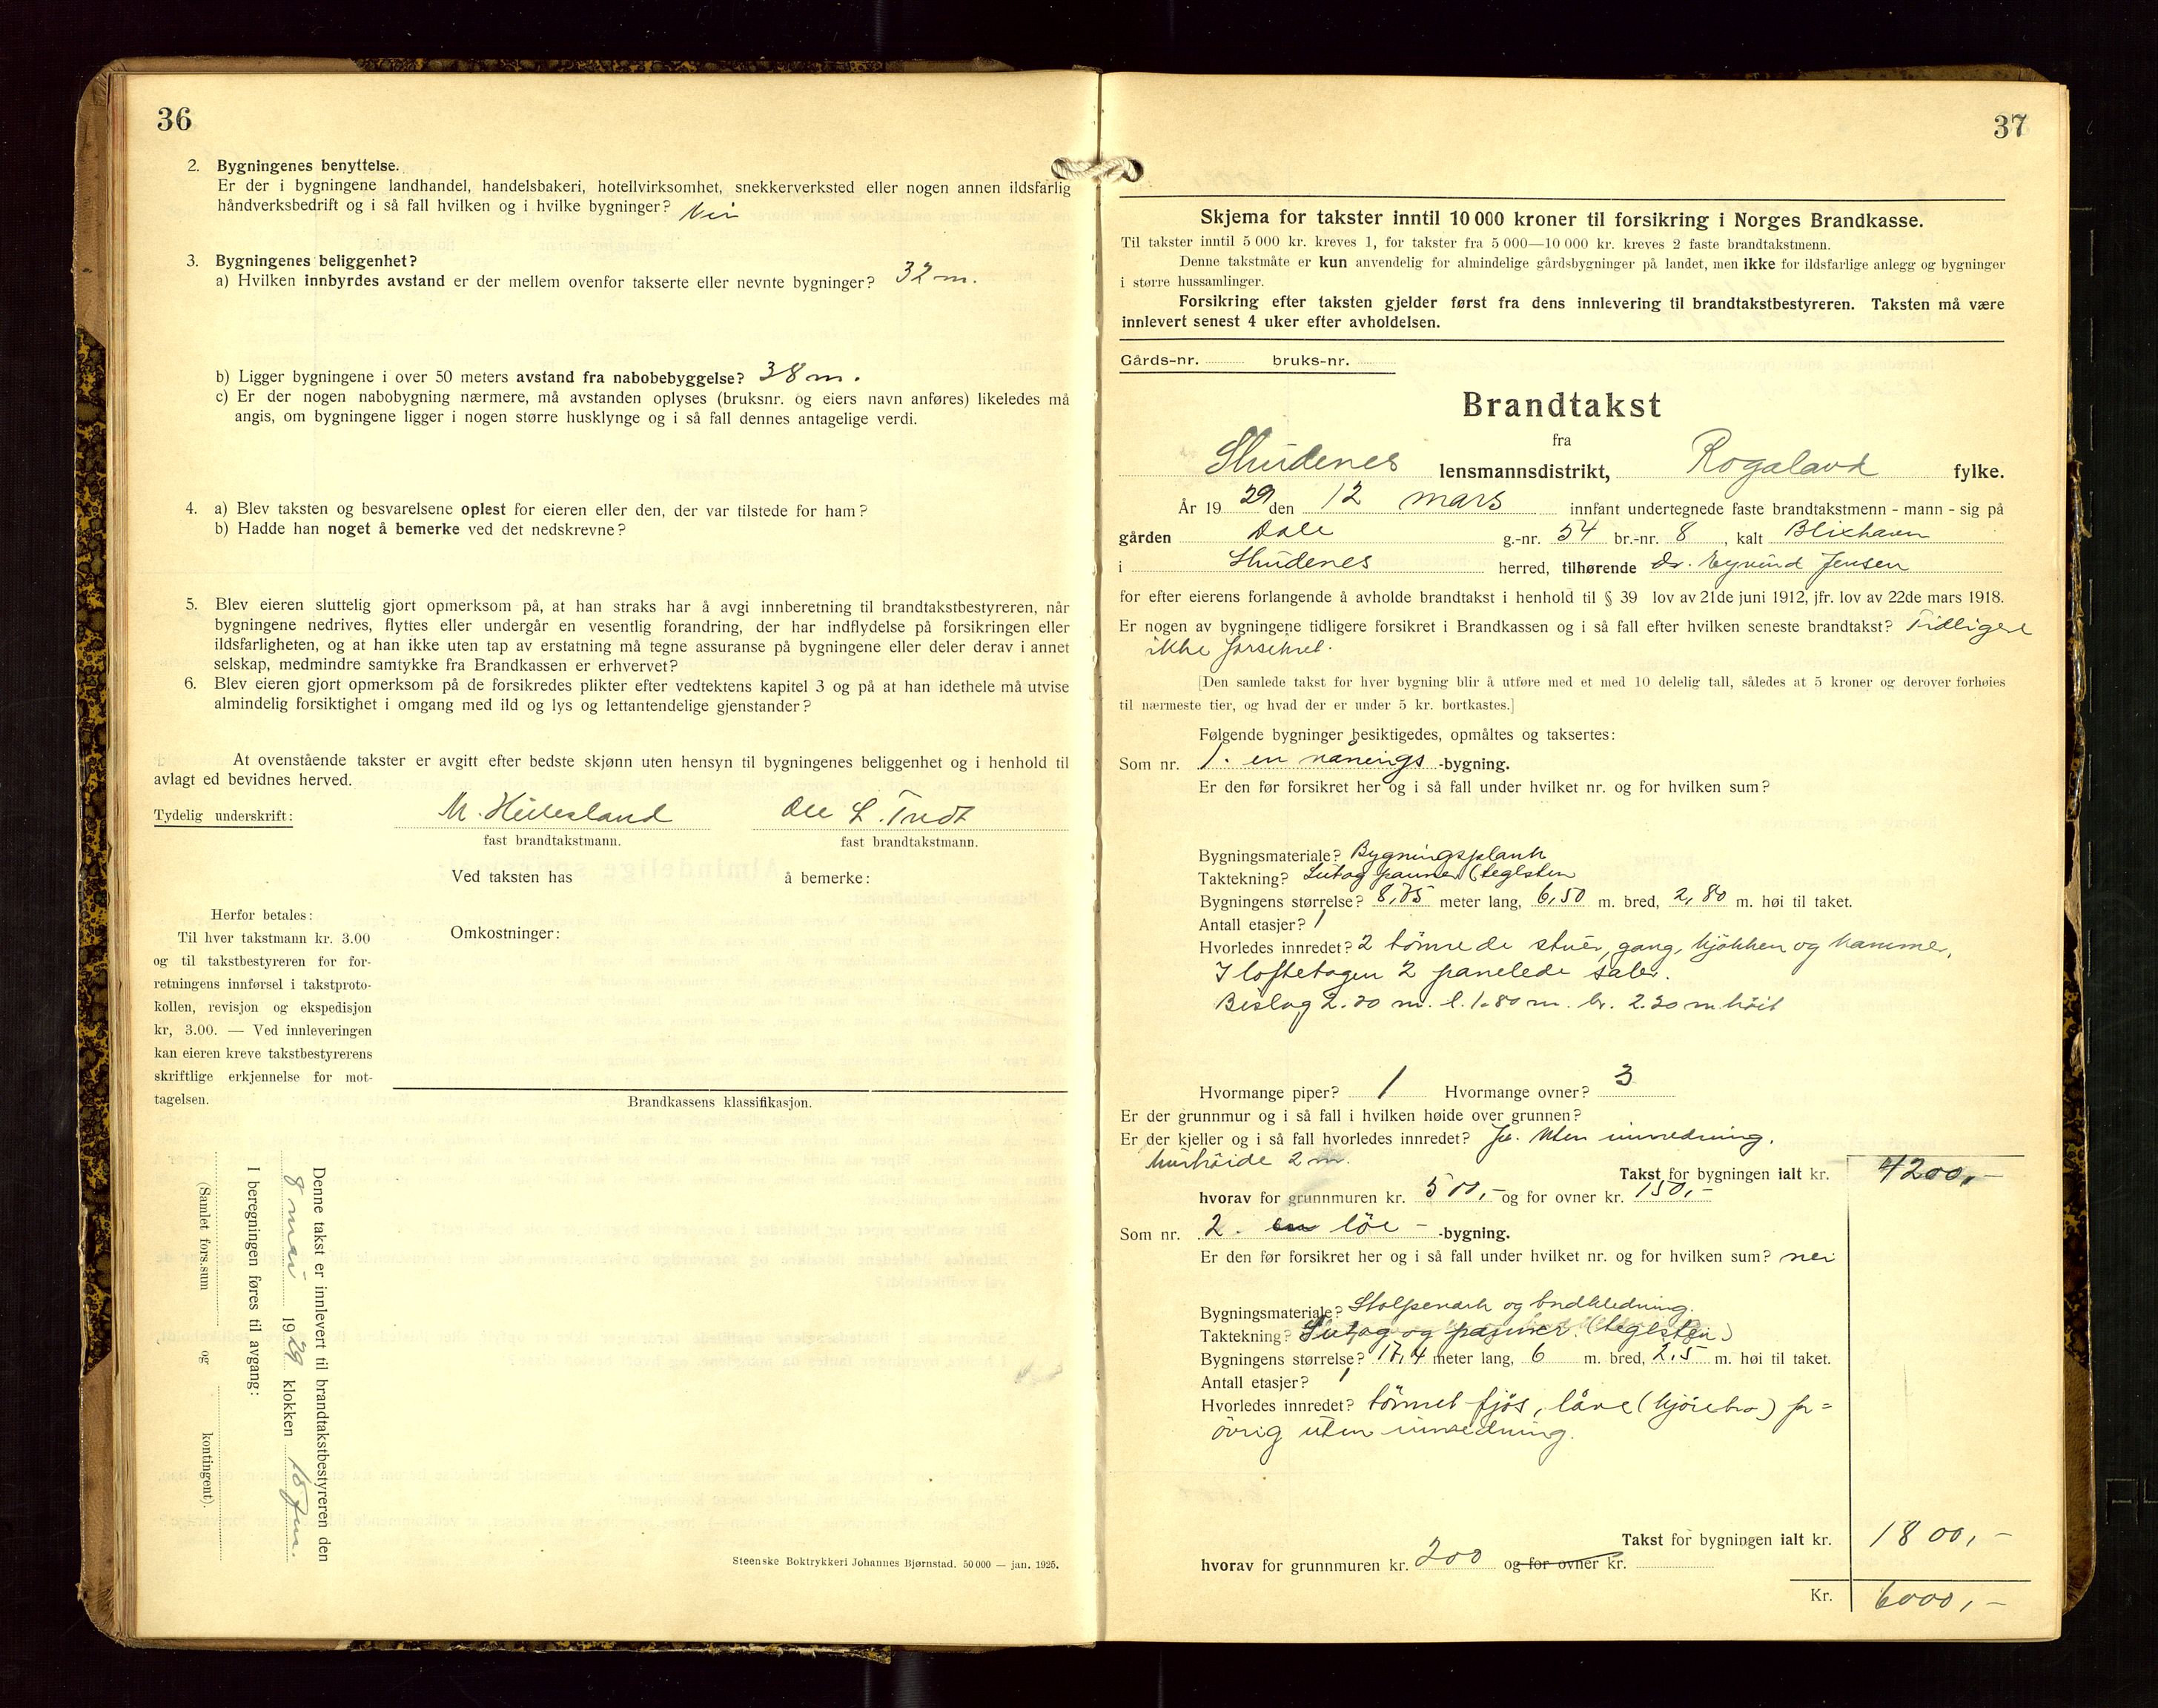 36
2. Bygningenes benyttelse.
Er der i bygningene landhandel, handelsbakeri, hotellvirksomhet, snekkerverksted eller nogen annen ildsfarlig
håndverksbedrift og i så fall hvilken og i hvilke bygninger? Nei
3. Bygningenes beliggenhet?
a) Hvilken innbyrdes avstand er der mellem ovenfor takserte eller nevnte bygninger? 32 m.
b) Ligger bygningene i over 50 meters avstand fra nabobebyggelse? 38 m.
c) Er der nogen nabobygning nærmere, må avstanden oplyses (bruksnr. og eiers navn anføres) likeledes må
angis, om bygningene ligger i nogen større husklynge og i så fall dennes antagelige verdi.
4. a) Blev taksten og besvarelsene oplest for eieren eller den, der var tilstede for ham?
b) Hadde han noget å bemerke ved det nedskrevne?
5. Blev eieren sluttelig gjort opmerksom på, at han straks har å avgi innberetning til brandtakstbestyreren, når
bygningene nedrives, flyttes eller undergår en vesentlig forandring, der har indflydelse på forsikringen eller
ildsfarligheten, og at han ikke uten tap av erstatning må tegne assuranse på bygningene eller deler derav i annet
selskap, medmindre samtykke fra Brandkassen er erhvervet?
6. Blev eieren gjort opmerksom på de forsikredes plikter efter vedtektens kapitel 3 og på at han idethele må utvise
almindelig forsiktighet i omgang med ild og lys og lettantendelige gjenstander?
At ovenstående takster er avgitt efter bedste skjønn uten hensyn til bygningenes beliggenhet og i henhold til
avlagt ed bevidnes herved.
Tydelig underskrift: M. Hillesland Ole L. Tvedt
fast brandtakstmann. fast brandtakstmann.
Ved taksten has å bemerke:
Herfor betales:
Til hver takstmann kr. 3.00
og til takstbestyreren for for-
retningens innførsel i takstproto-
kollen, revisjon og ekspedisjon
kr, 3.00. — Ved innleveringen
kan eieren kreve takstbestyrerens
skriftlige erkjennelse for mot-
tagelsen.
Omkostninger:
Brandkassens klassifikasjon.
Denne takst er innlevert til brandtakstbestyreren den
8 mai 1929 klokken 18
I beregningen føres til avgang:
(Samlet fors.sum og kontingent).
Steenske Boktrykkeri Johannes Bjørnstad. 50 000 — jan. 1925.
37
Skjema for takster inntil 10 000 kroner til forsikring i Norges Brandkasse.
Til takster inntil 5 000 kr. kreves 1, for takster fra 5 000—10 000 kr. kreves 2 faste brandtakstmenn.
Denne takstmåte er kun anvendelig for almindelige gårdsbygninger på landet, men ikke for ildsfarlige anlegg og bygninger
i større hussamlinger.
Forsikring efter taksten gjelder først fra dens innlevering til brandtakstbestyreren. Taksten må være
innlevert senest 4 uker efter avholdelsen.
Gårds-nr. bruks-nr.
Brandtakst
fra
Skudenes lensmannsdistrikt, Rogaland fylke.
År 1929 den 12 mars innfant undertegnede faste brandtakstmenn - mann - sig på
gården Dale g.-nr. 54 br.-nr. 8, kalt Blixhavn
i Skudenes herred, tilhørende dr. Eyvind Jensen
for efter eierens forlangende å avholde brandtakst i henhold til § 39 lov av 21de juni 1912, jfr. lov av 22de mars 1918.
Er nogen av bygningene tidligere forsikret i Brandkassen og i så fall efter hvilken seneste brandtakst? Tidligere
ikke forsikret.
[Den samlede takst for hver bygning blir å utføre med et med 10 delelig tall, således at 5 kroner og derover forhøies
til nærmeste tier, og hvad der er under 5 kr. bortkastes.]
Følgende bygninger besiktigedes, opmåltes og taksertes:
Som nr. 1. en vånings -bygning.
Er den før forsikret her og i så fall under hvilket nr. og for hvilken sum?
Bygningsmateriale? Bygningsplank
Taktekning? Sutag panner (teglsten
Bygningens størrelse? 8,75 meter lang, 6,50 m. bred, 2,80 m. høi til taket.
Antall etasjer? 1
Hvorledes innredet? 2 tömrede stuer, gang, kjökken og kammer,
I loftetagen 2 panelede saler.
Beslag 2.20 m. l. 1.80 m. br. 2.20 m. höit
Hvormange piper? 1 Hvormange ovner? 3
Er der grunnmur og i så fall i hvilken høide over grunnen?
Er der kjeller og i så fall hvorledes innredet? Ja. Uten innredning.
Murhöide 2 m.
Takst for bygningen ialt kr. 4200,-
hvorav for grunnmuren kr. 500,- og for ovner kr. 150,-
Som nr. 2. en löe - -bygning.
Er den før forsikret her og i så fall under hvilket nr. og for hvilken sum? nei
Bygningsmateriale? Stolpeverk og bordkledning.
Taktekning? Sutag og panner. (teglsten)
Bygningens størrelse? 17,4 meter lang, 6 m. bred, 2,5 m. høi til taket.
Antall etasjer? 1
Hvorledes innredet? tömret fjös, låve (kjörebro) for=
övrig uten innredning.
Takst for bygningen ialt kr. 1800,-
hvorav for grunnmuren kr. 200 og for ovner kr.
Kr. 6000,-